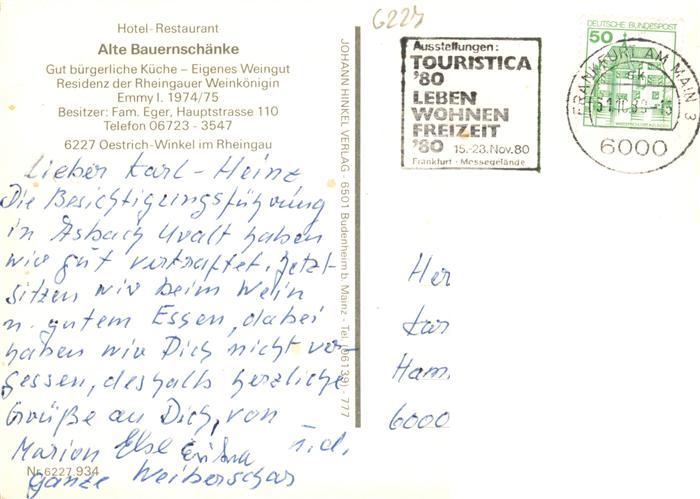 Hotel-Restaurant
Alte Bauernschänke
Gut bürgerliche Küche – Eigenes Weingut
Residenz der Rheingauer Weinkönigin
Emmy I. 1974/75
Besitzer: Fam. Eger, Hauptstrasse 110
Telefon 06723 - 3547
6227 Oestrich-Winkel im Rheingau
Lieber Karl-Heinz
Die Besichtigungsführung
in Asbach Uralt haben
wir gut verkraftet. Jetzt
sitzen wir beim Wein
u. gutem Essen, dabei
haben wir Dich nicht ver-
gessen, deshalb herzliche
Grüße an Dich, von
Marion Else Erika u. d.
ganze Weiberschar
Nr. 6227.934
JOHANN HINKEL VERLAG - 6501 Budenheim b. Mainz - Tel. (06139) - 777
6227
Ausstellungen:
TOURISTICA
'80
LEBEN
WOHNEN
FREIZEIT
'80 15.-23. Nov. 80
Frankfurt - Messegelände
DEUTSCHE BUNDESPOST
50
FRANKFURT AM MAIN 3
6000
Her
Kar
Ham
6000